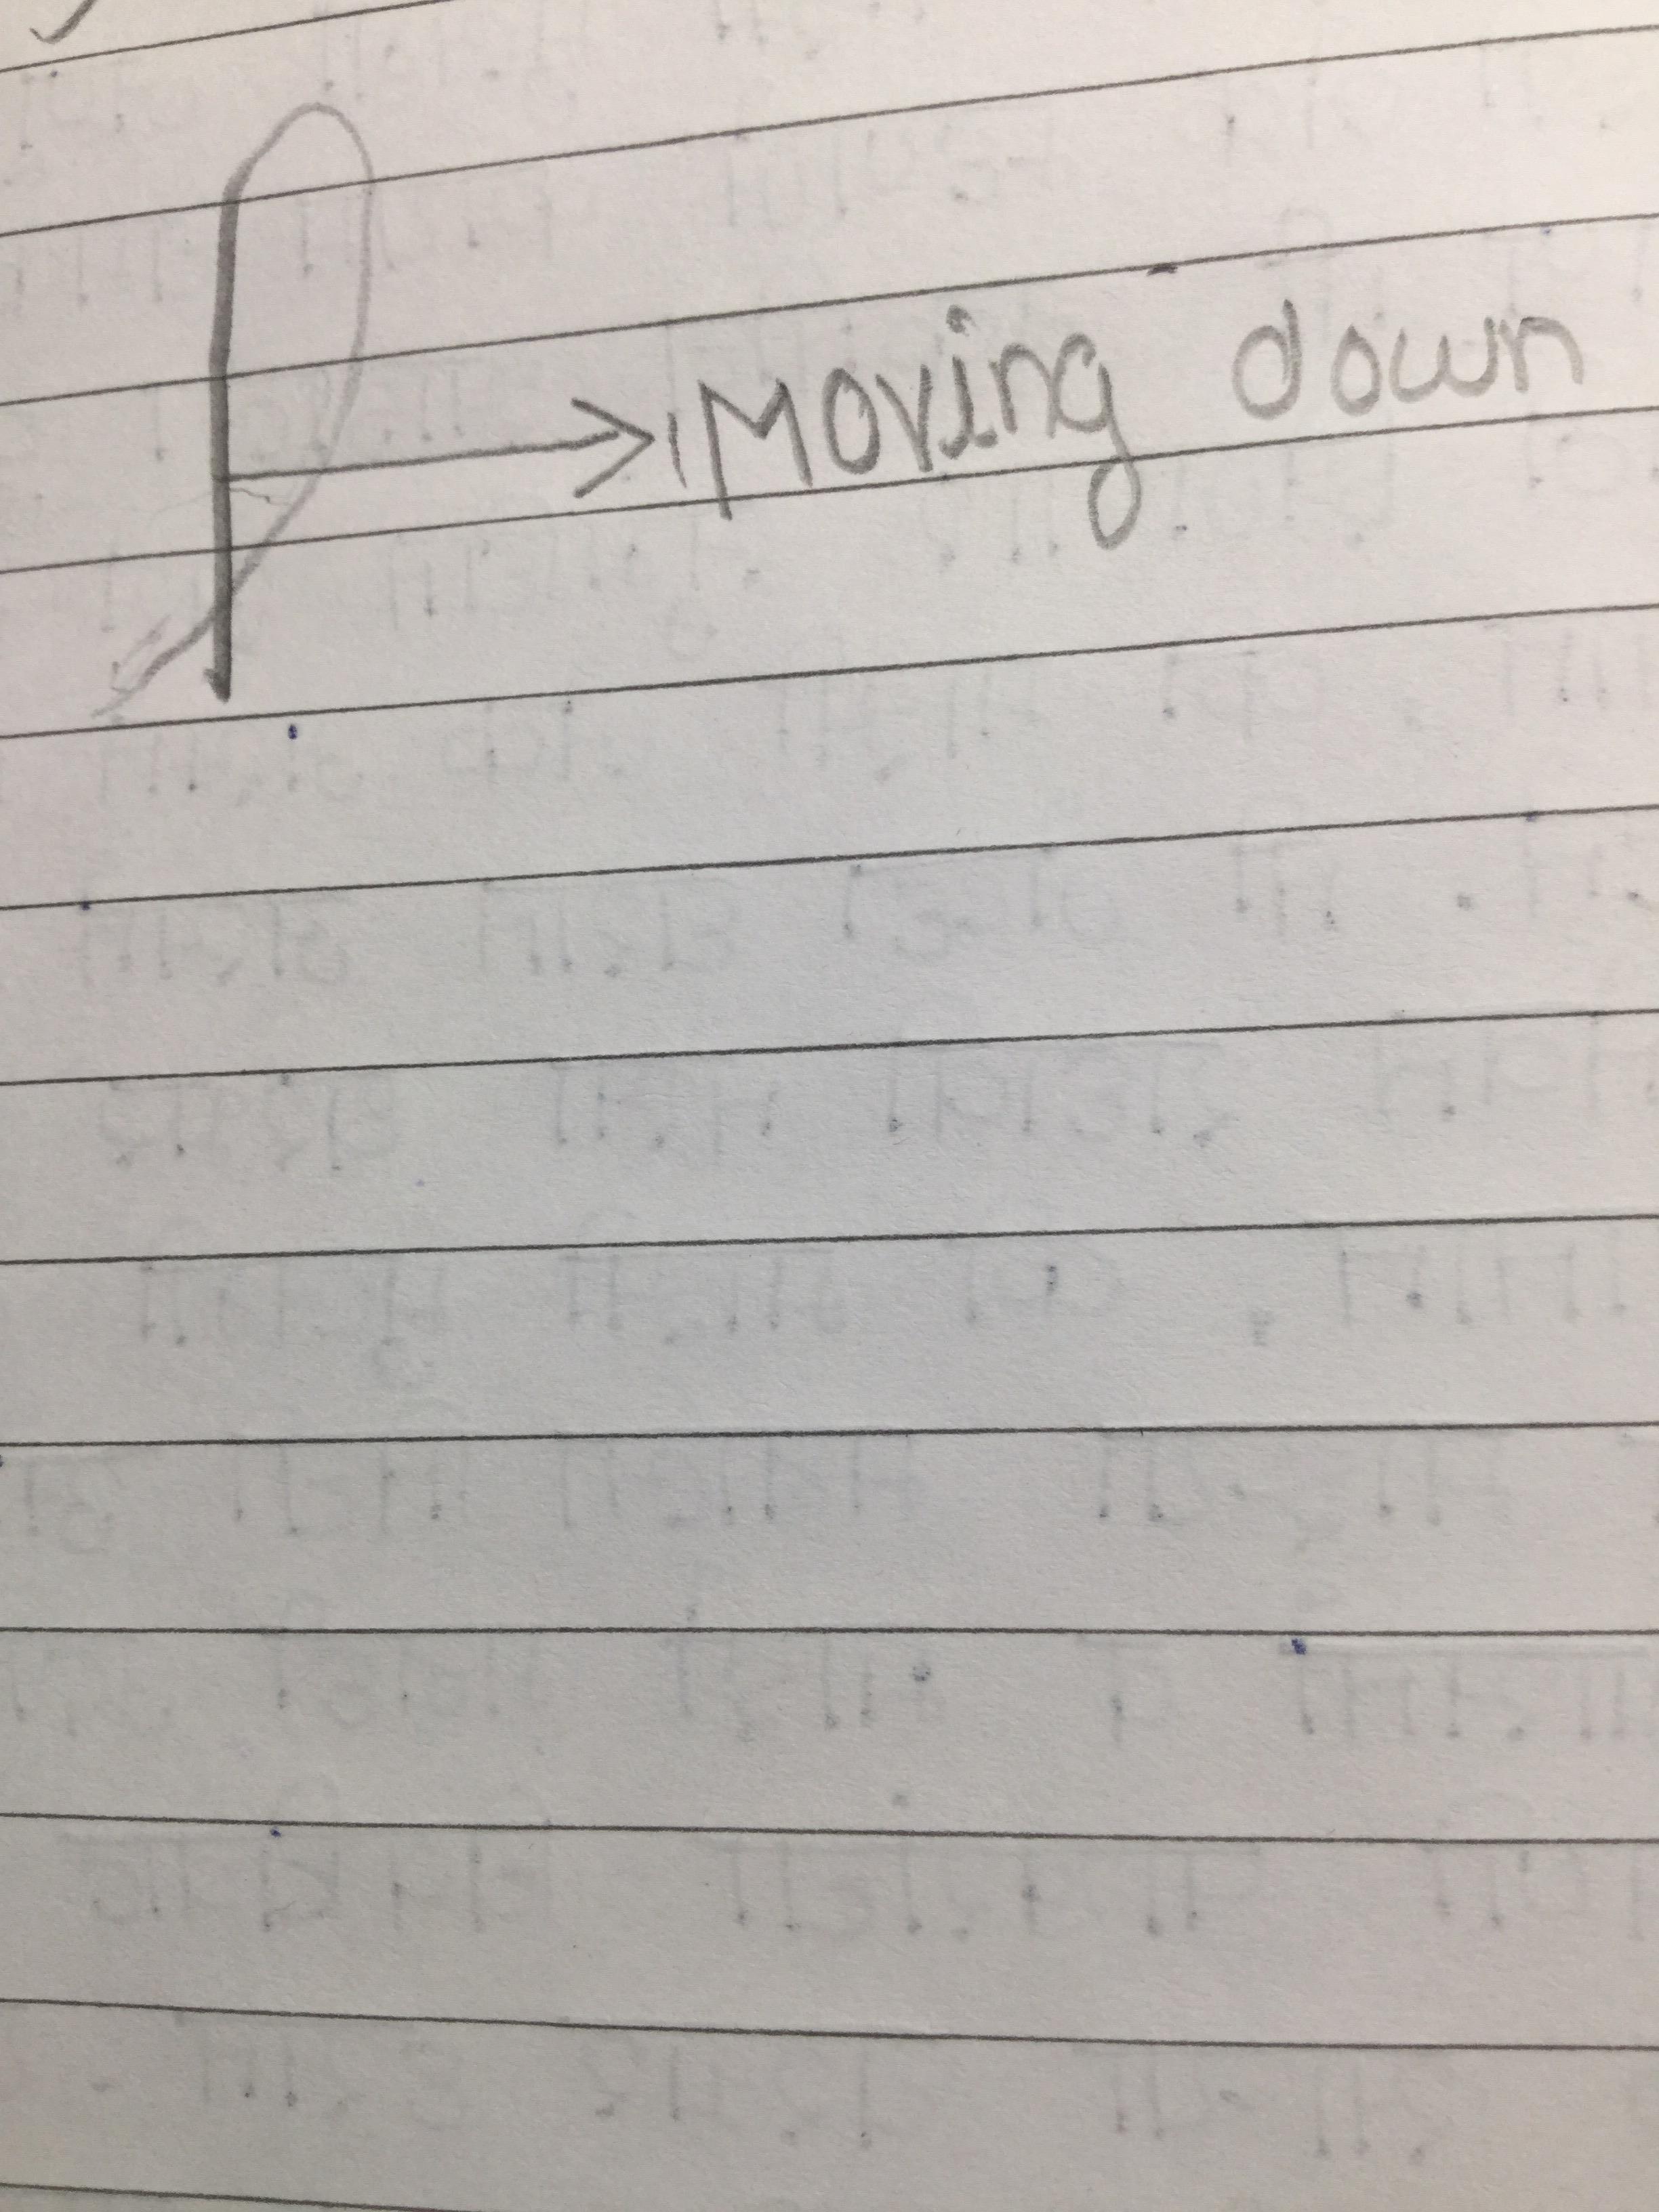 Moving down